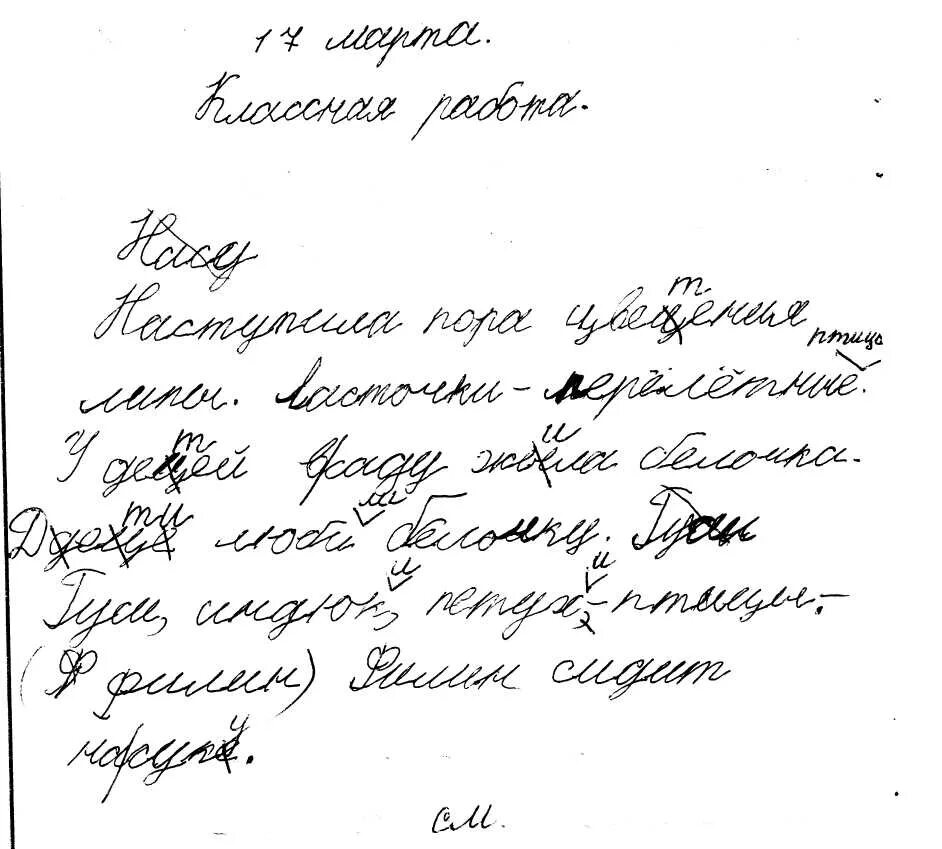 17 марта.
Классная работа.
Насу
Наступила пора цвещения
т
птицы
липы. Ласточки - перелётные.
У децей в саду жыла белочка.
т
и
Дјеце люби белочку. Гуси
ти
ли
Гуси, индюк, петух - птицы.
и
и
(Ф филин) Филин сидит
на суке.
у
см.